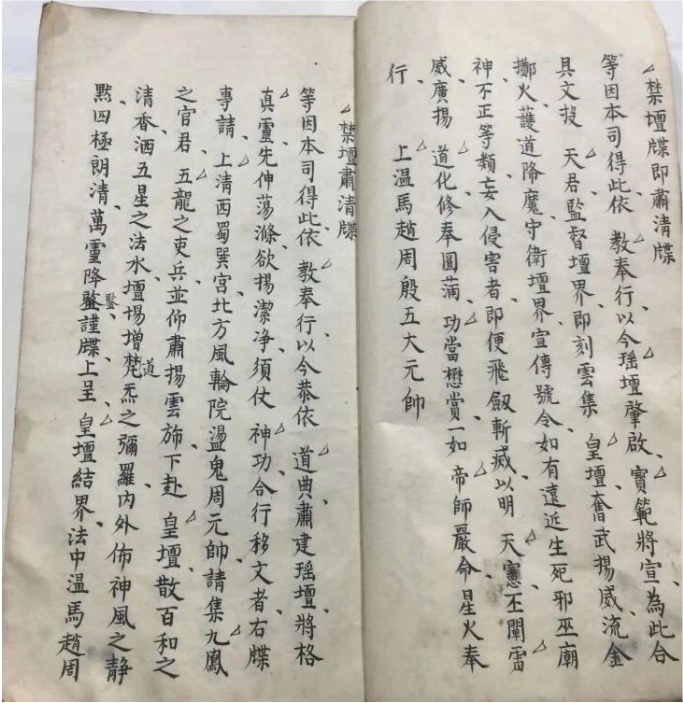 禁壇牒即肅清牒
等因本司得此依 教奉行以今瑶壇肇啟、寶範將宣為此合
具文投 天君監督壇界即刻雲集 皇壇奮武揚威流金
擲火、護道降魔守衛壇界宣傳號令如有遠近生死邪巫廟
神、不正等類妄入侵害者即便飛劔斬滅以明 天憲丕闡雷
威廣揚 道化修奉圓滿、功當懋賞一如 帝師嚴命、星火奉
行、 上温馬趙周殷五大元帥
禁壇肅清牒
等因本司得此依 教奉行以今恭依 道典肅建瑶壇、將格
真靈先伸蕩滌、欲揚潔净、須仗 神功合行移文者右牒
專請、上清西蜀巽宮北方風輪院盪鬼周元帥、請集九鳳
之官君、五龍之吏兵並仰肅揚雲斾下赴 皇壇、散百和之
清香、洒五星之法水、壇場增梵炁道之彌羅、内外佈神風之静
黙、四極朗清、萬靈降鍳監謹牒上呈 皇壇結界、法中温馬趙周